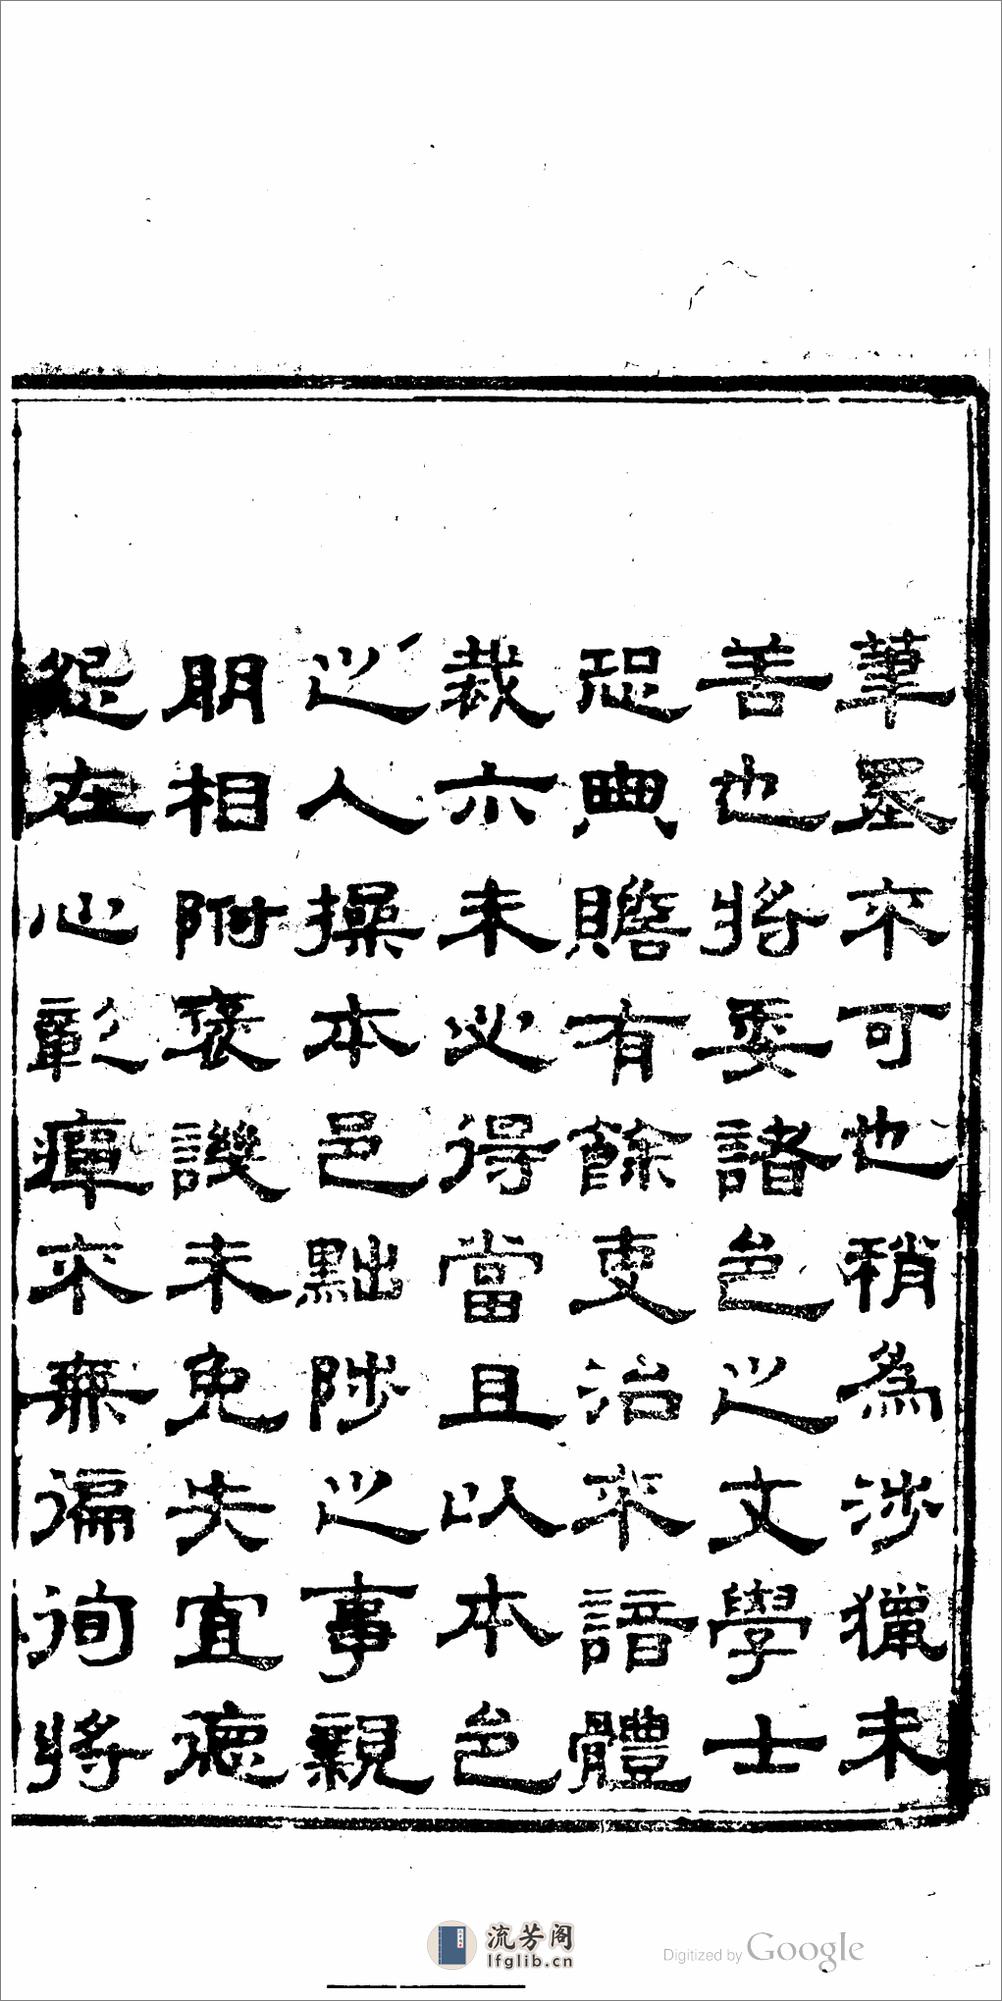 筆墨不可也稍爲涉獵未
善也將委諸邑之文學士
恐典贍有餘吏治不諳體
裁亦未必得當且以本邑
之人操本邑黜陟之事親
朋相附褒譏未免失宜德
怨在心彰癉不無徧徇將
流芳阁
lfglib.cn
Digitized by Google